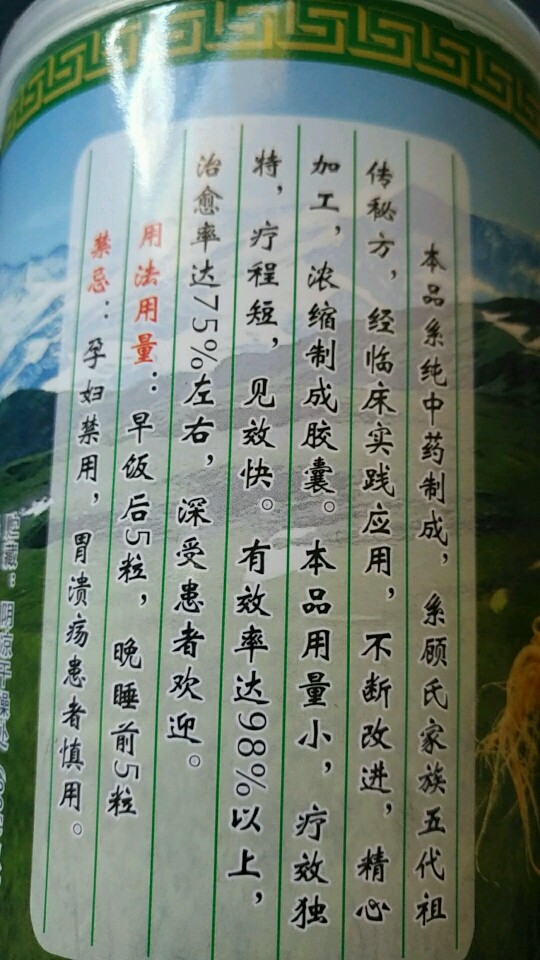 本品系纯中药制成，系顾氏家族五代祖
传秘方，经临床实践应用，不断改进，精心
加工，浓缩制成胶囊。本品用量小，疗效独
特，疗程短，见效快。有效率达98%以上，
治愈率达75%左右，深受患者欢迎。
用法用量：早饭后5粒，晚睡前5粒
禁忌：孕妇禁用，胃溃疡患者慎用。
贮藏：阴凉干燥处